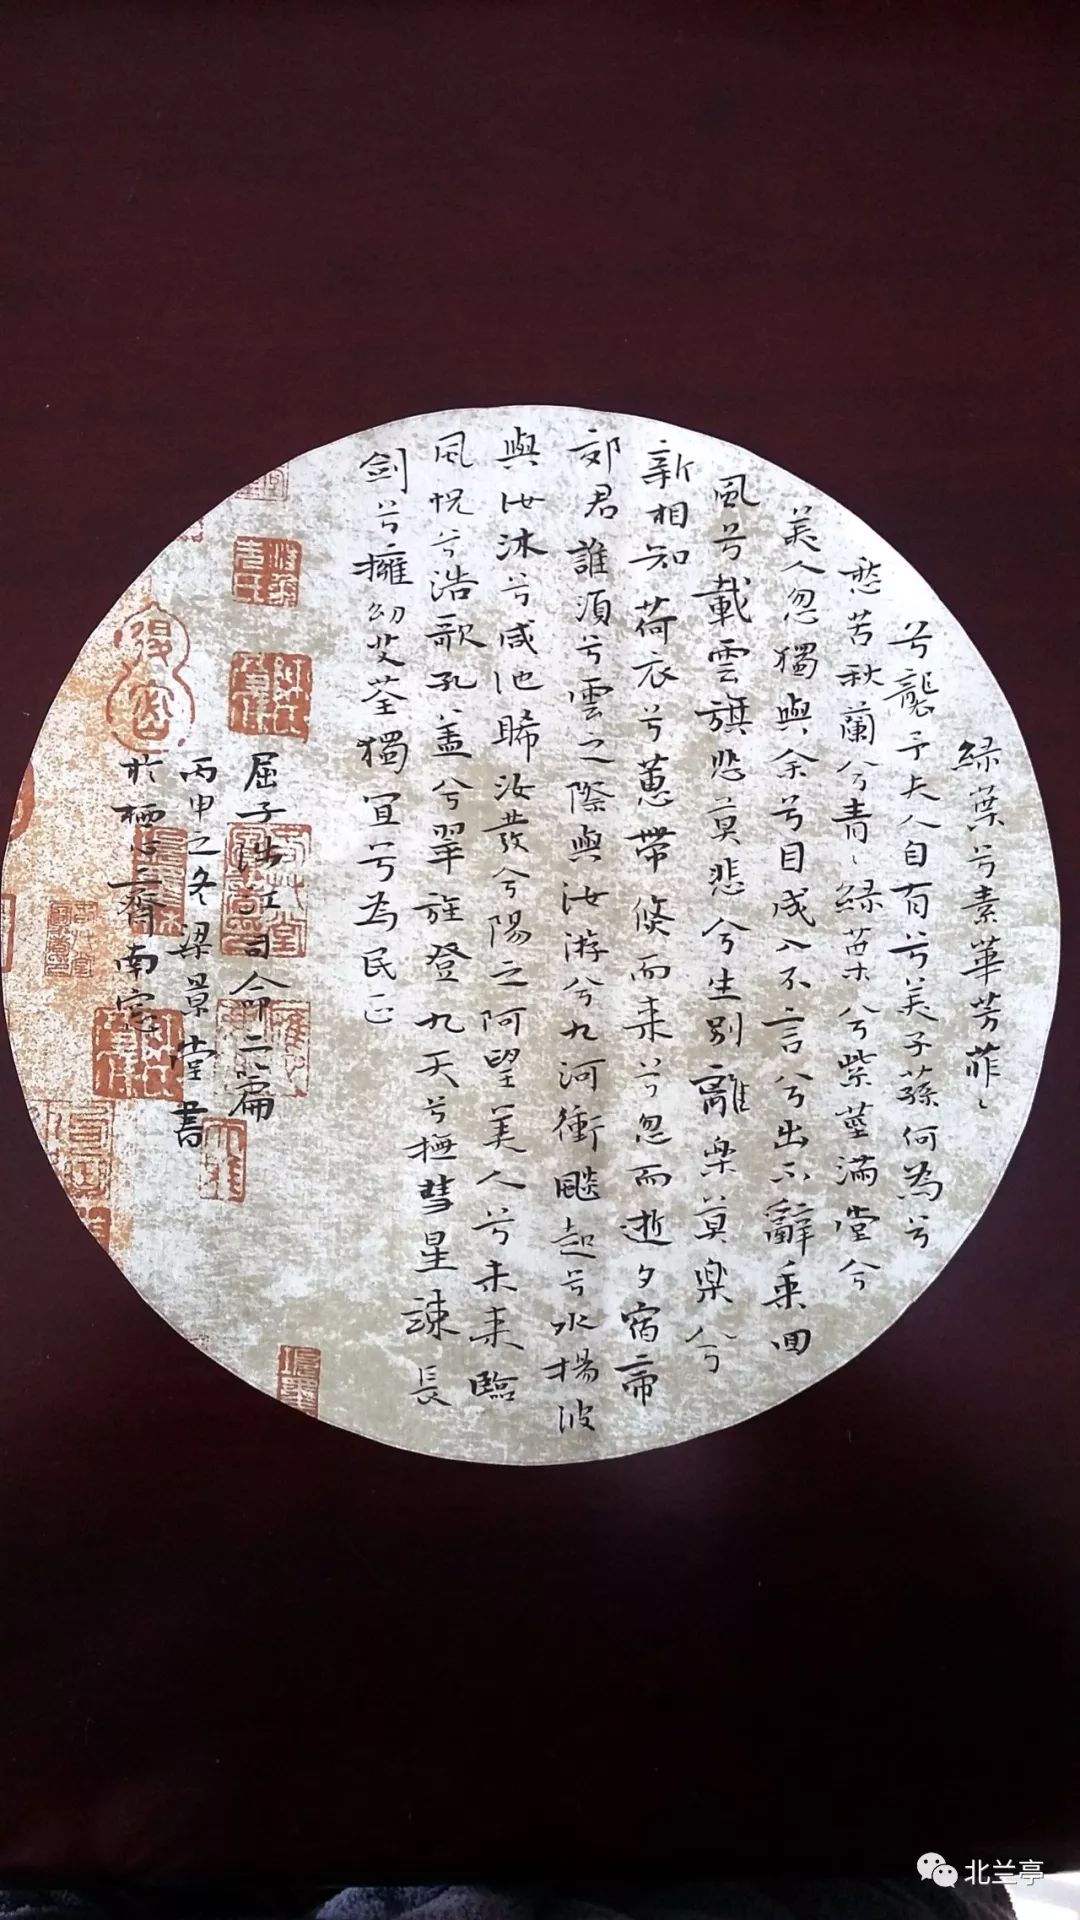 緑葉兮素華芳菲〻
兮襲予夫人自有兮美子蓀何為兮
愁苦秋蘭兮青〻緑葉兮紫莖滿堂兮
美人忽獨與余兮目成入不言兮出不辭乘回
風兮載雲旗悲莫悲兮生別離樂莫樂兮
新相知荷衣兮蕙帶倏而来兮忽而逝夕宿帝
郊君誰須兮雲之際與汝游兮九河衝飈起兮水揚波
與汝沐兮咸池晞汝髮兮陽之阿望美人兮未来臨
風怳兮浩歌孔蓋兮翠旌登九天兮撫彗星竦長
劍兮擁幼艾荃獨宜兮為民正
屈子司命二篇
丙申之冬梁景堂書
於栖齋南窗
北兰亭